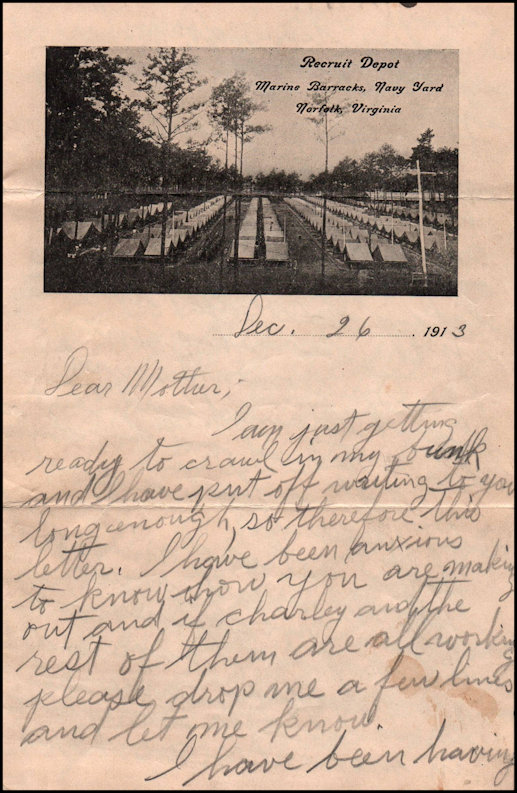 Recruit Depot
Marine Barracks, Navy Yard
Norfolk, Virginia
Dec. 26 1913
Dear Mother;
I am just getting
ready to crawl in my bunk
and I have put off writing to you
long enough, so therefore this
letter. I have been anxious
to know how you are making
out and if charley and the
rest of them are all working
please drop me a few lines
and let me know.
I have been having